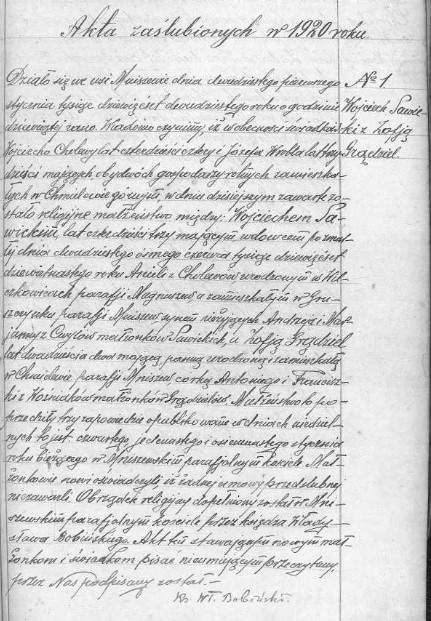 Akta zaślubionych w 1920 roku.
Działo się we wsi Mniszewie dnia dwudziestego pierwszego
stycznia tysiąc dziewięćset dwudziestego roku o godzinie
dziewiątej rano. Wiadomo czynimy, iż w obecności świadków
Wojciecha Cholewy lat czterdzieści cztery i Józefa Wróbla lat trzy
dzieści mających obydwóch gospodarzy rolnych zamieszka-
łych w Chmielewie górnym, w dniu dzisiejszym zawarte zo-
stało religijne małżeństwo między: Wojciechem Sa-
wickim lat czterdzieści trzy mającym wdowcem po zmar-
łej dnia dwudziestego ósmego czerwca tysiąc dziewięćset
dziewiętnastego roku Anieli z Cholewów urodzonym w Wil-
czkowicach parafji Magnuszew a zamieszkałym w Gru-
szczynku parafji Mniszew synem nieżyjących Andrzeja i Mar-
janny z małżonków Sawickich, a Zofją Grządziel
lat dwadzieścia dwa mającą panną urodzoną i zamieszkałą
w Chmielewie parafji Mniszew córką Antoniego i Francisz-
ki z Woźniaków małżonków Grządzielów. Małżeństwo to po-
przedziły trzy zapowiedzie opublikowane w dniach niedziel-
nych to jest czwartego, jedenastego i osiemnastego stycznia
roku bieżącego w Mniszewskim parafjalnym kościele. Mał-
żonkowie nowi oświadczyli iż żadnej umowy przedślubnej
nie zawarli. Obrządek religijny dopełniony został w Mni-
szewskim parafjalnym kościele przez księdza Włady-
sława Bobińskiego. Akt ten stawającym nowym mał-
żonkom i świadkom pisać nieumiejącym przeczytany,
przez Nas podpisany został.-
Ks. Wł. Bobiński
No 1
Wojciech Sawic-
ki z Zofją
Grządziel.